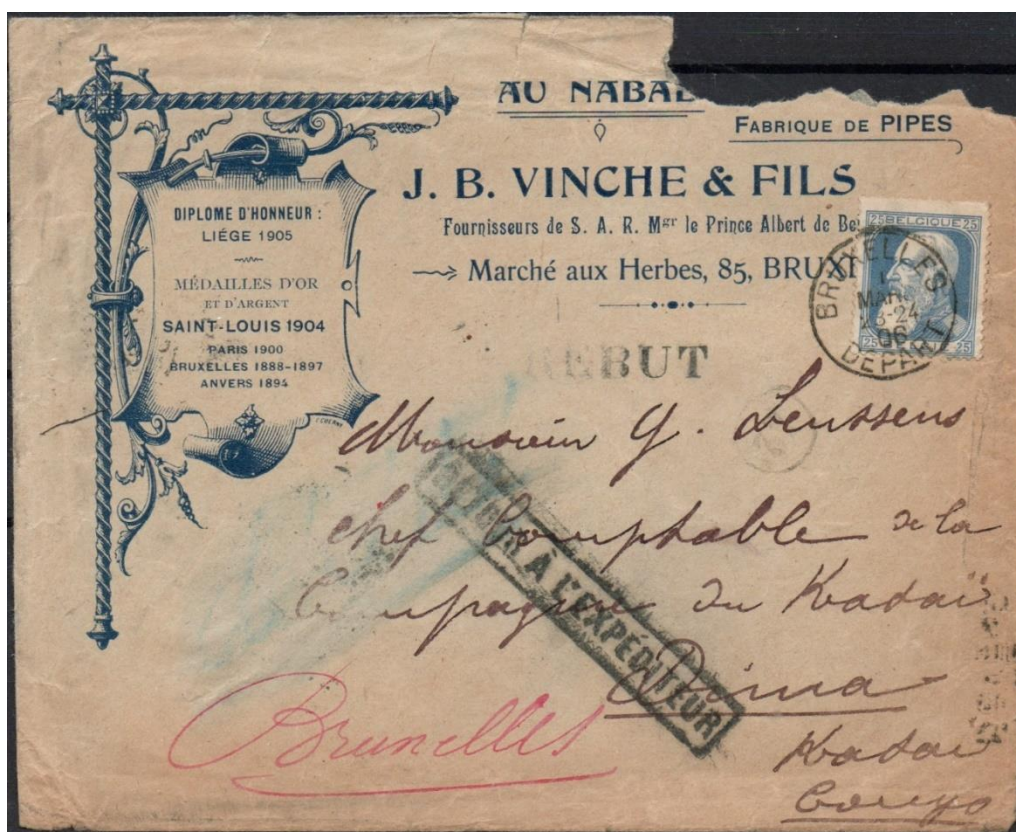 AU NABAB
FABRIQUE DE PIPES
J. B. VINCHE & FILS
Fournisseurs de S. A. R. Mgr le Prince Albert de Be
Marché aux Herbes, 85, BRUXE
DIPLOME D'HONNEUR :
LIÉGE 1905
MÉDAILLES D'OR
ET D'ARGENT
SAINT-LOUIS 1904
PARIS 1900
BRUXELLES 1888-1897
ANVERS 1894
25 BELGIQUE 25
25 25
BRUXELLES
1
MARS
23-24
06
DEPART
REBUT
Monsieur G. Leussens
chef Comptable de la
Compagnie du Kasaï
Dima
Kasaï
Congo
RETOUR À L'EXPÉDITEUR
Bruxelles